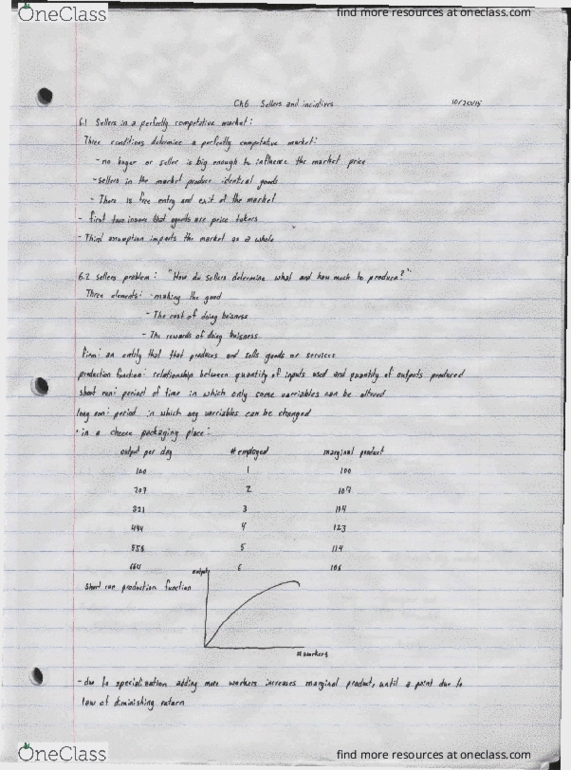 OneClass
find more resources at oneclass.com
Ch.6 Sellers and incintives 10/20/15
6.1 Sellers in a perfectly competative market:
Three conditions determine a perfectly computative market:
- no buyer or seller is big enough to influence the market price
- sellers in the market produce identical goods
- There is free entry and exit of the market
- first two insure that agents are price takers
- Third assumption impacts the market as a whole
6.2 sellers problem: "How do sellers determine what and how much to produce?"
Three elements: - making the good
- The cost of doing buisness
- The rewards of doing buisness
firm: an entity that that produces and sells goods or services
production function: relationship between quantity of inputs used and quantity of outputs produced
short run: period of time in which only some varriables can be altered
long run: period in which any varriables can be changed
• in a cheese packaging place:
output per day # employed marginal product
100 1 100
207 2 107
321 3 114
444 4 123
558 5 114
664 6 106
output
short run production function
# workers
- due to specialization adding more workers increases marginal product, until a point due to
law of diminishing return
OneClass
find more resources at oneclass.com